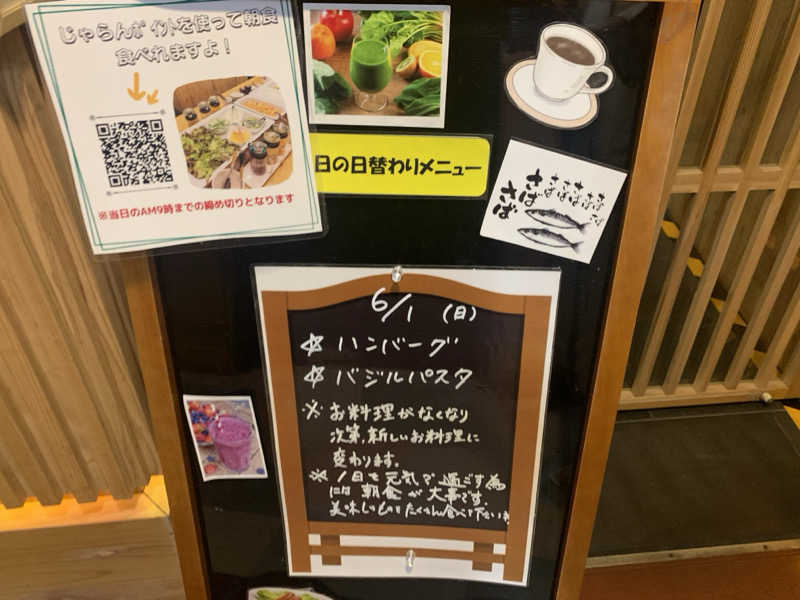 じゃらんポイントを使って朝食
食べれますよ！
※当日のAM9時までの締め切りとなります
日の日替わりメニュー
さば
さば
さば
さば
さば
さば
6/1 (日)
☆ ハンバーグ
☆ バジルパスタ
※ お料理がなくなり
次第、新しいお料理に
変わります。
※ 1日を元気で過ごす為
には朝食が大事です。
美味しいものをたくさん食べて下さいね